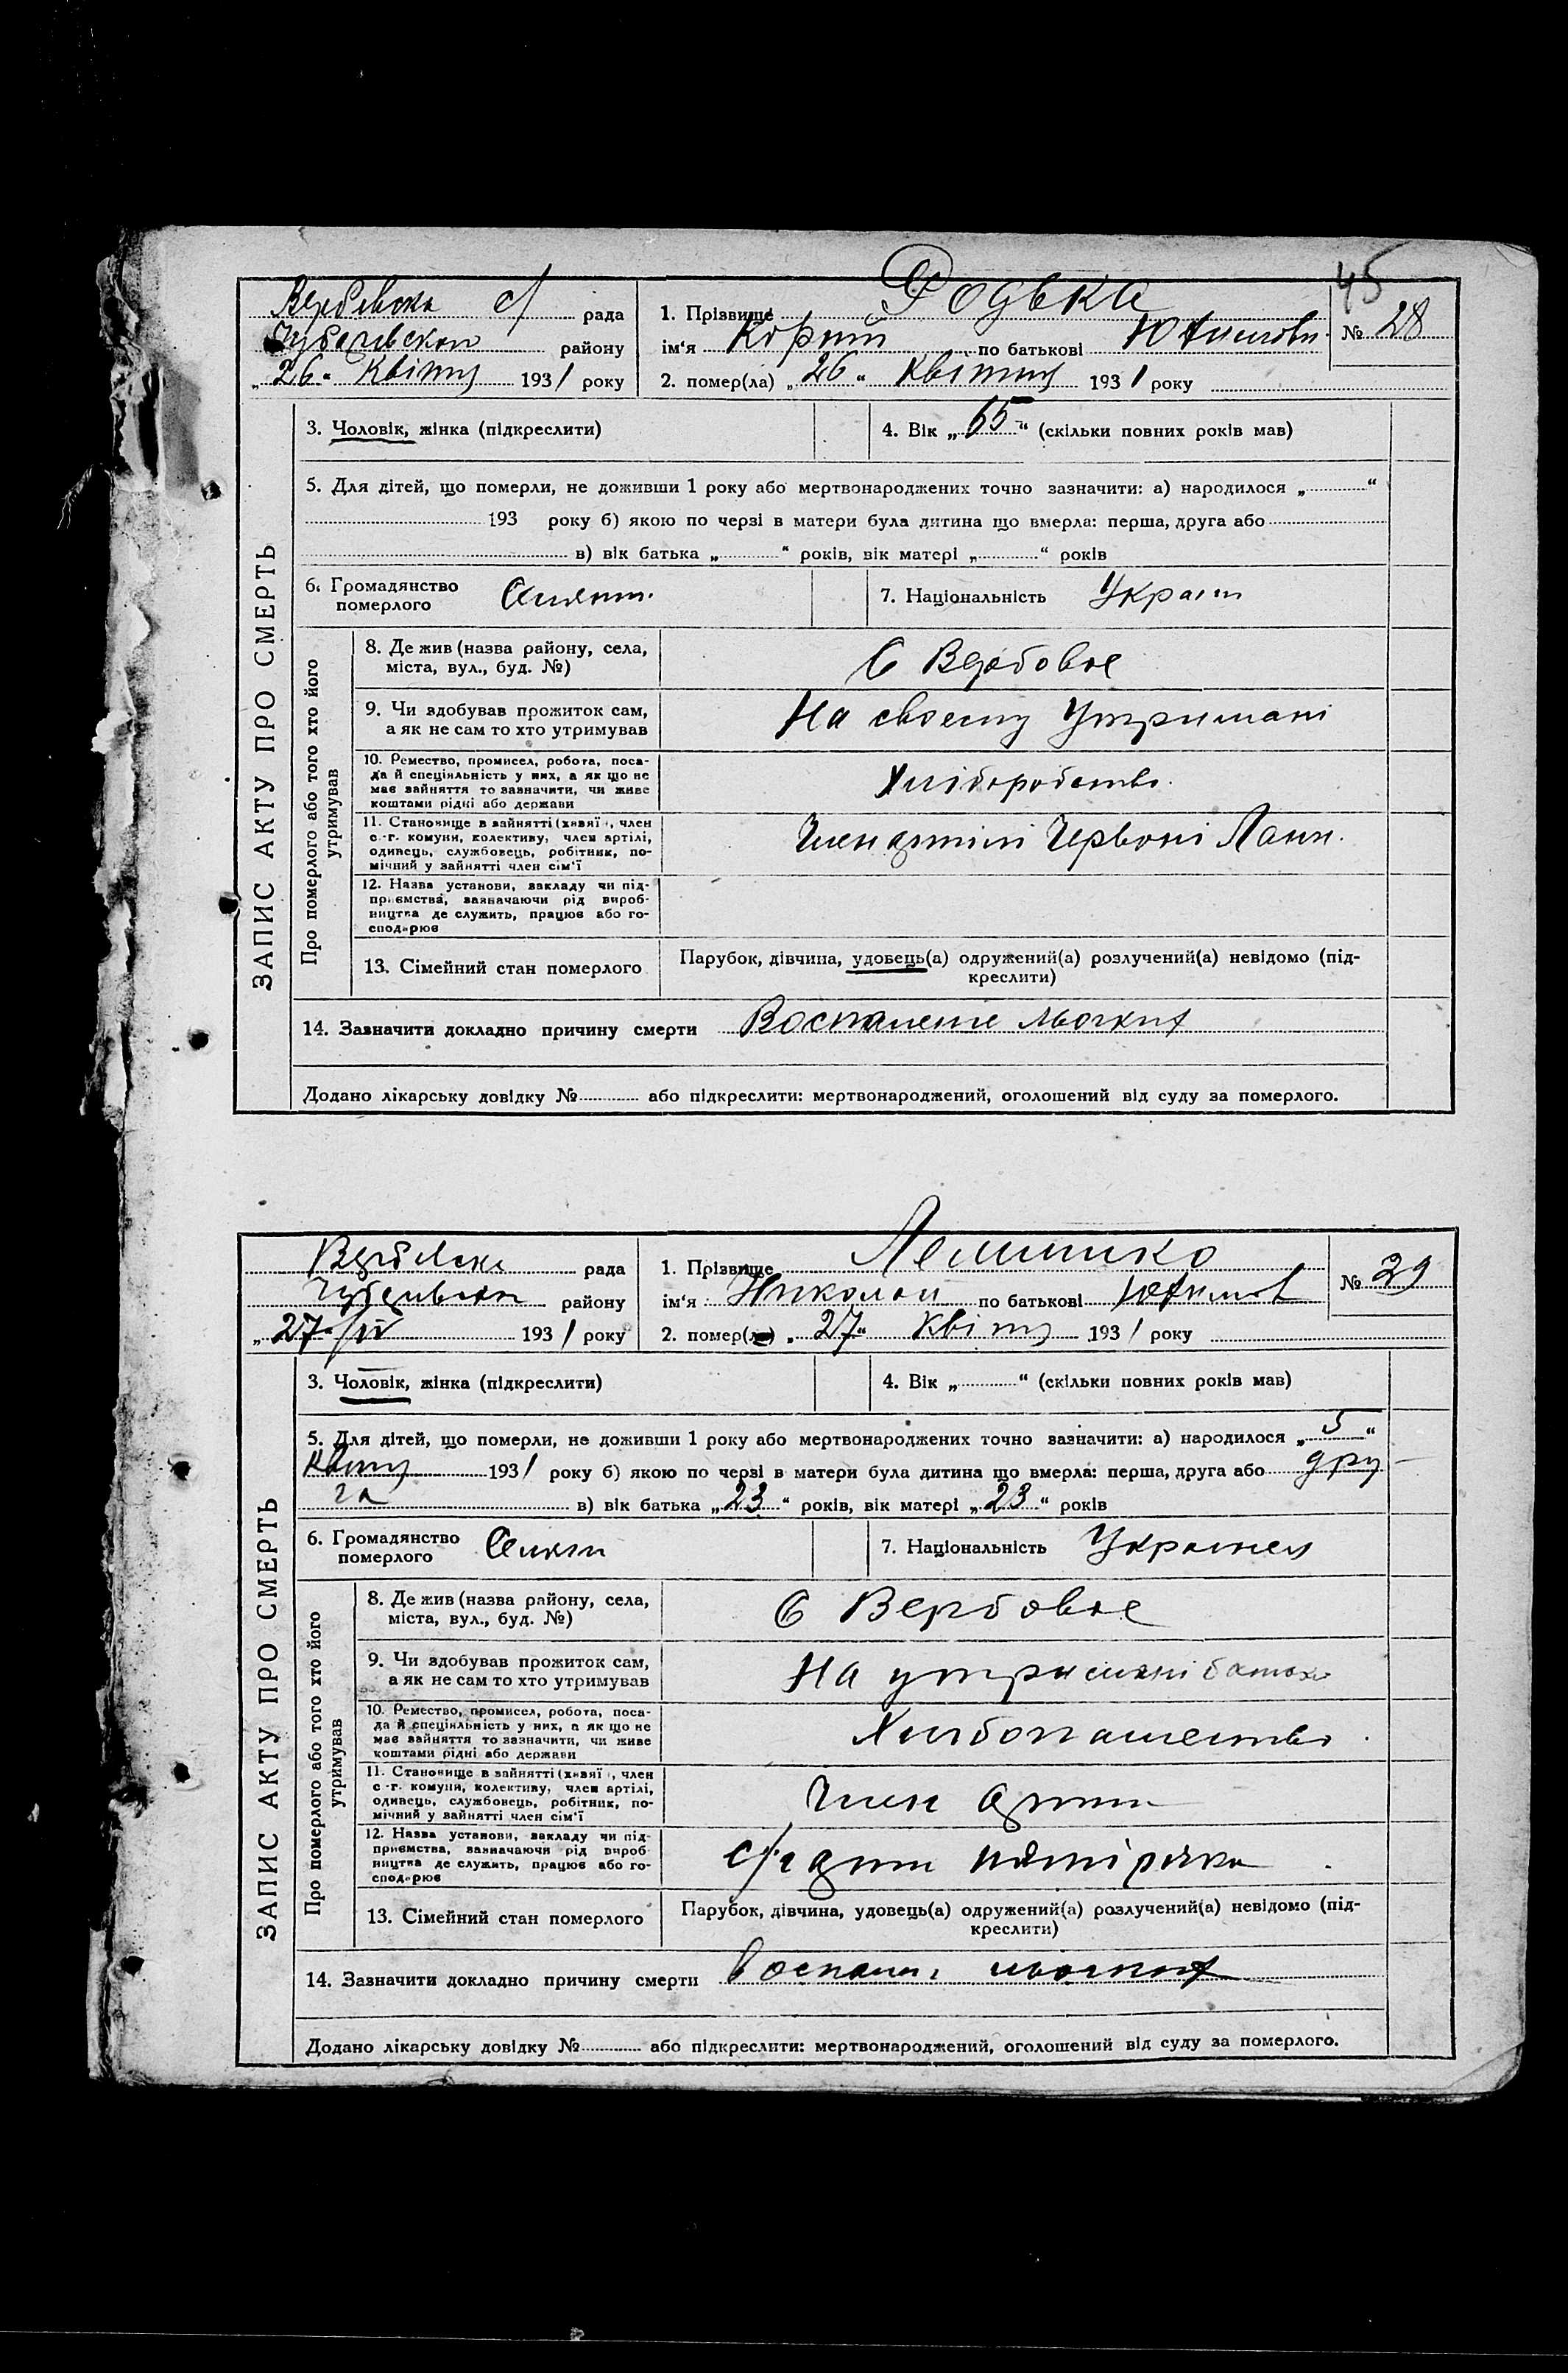 45
рада
району
„26“ Квітня 1931 року
1. Прізвище Родька
ім'я Корній по батькові Юхимови
№ 28
2. помер(ла) „26“ Квітня 1931 року
ЗАПИС АКТУ ПРО СМЕРТЬ
3. Чоловік, жінка (підкреслити)
4. Вік „65“ (скільки повних років мав)
5. Для дітей, що померли, не доживши 1 року або мертвонароджених точно зазначити: а) народилося „ “
193 року б) якою по черзі в матери була дитина що вмерла: перша, друга або
в) вік батька „ “ років, вік матері „ “ років
6. Громадянство
померлого
7. Національність Украін
Про померлого або того хто його
утримував
8. Де жив (назва району, села,
міста, вул., буд. №)
С Вербовое
9. Чи здобував прожиток сам,
а як не сам то хто утримував
На своему Утримані
10. Ремество, промисел, робота, поса-
да й спеціяльність у них, а як що не
має зайняття то зазначити, чи живе
коштами рідні або держави
Хліборобство.
11. Становище в зайнятті (хазяї , член
с.-г. комуни, колективу, член артілі,
одинець, службовець, робітник, по-
мічний у зайнятті член сім'ї
Член артілі Червоні Лани.
12. Назва установи, закладу чи під-
приємства, зазначаючи рід вироб-
ництва де служить, працює або го-
сподарює
13. Сімейний стан померлого
Парубок, дівчина, удовець(а) одружений(а) розлучений(а) невідомо (під-
креслити)
14. Зазначити докладно причину смерти Воспаление льогких
Додано лікарську довідку № або підкреслити: мертвонароджений, оголошений від суду за померлого.
рада
району
„27“/IV 1931 року
1. Прізвище Лемишко
ім'я Николай по батькові Юхимов
№ 29
2. помер(ла) „27“ Квітня 1931 року
ЗАПИС АКТУ ПРО СМЕРТЬ
3. Чоловік, жінка (підкреслити)
4. Вік „ “ (скільки повних років мав)
5. Для дітей, що померли, не доживши 1 року або мертвонароджених точно зазначити: а) народилося „5“
Квітня 1931 року б) якою по черзі в матери була дитина що вмерла: перша, друга або дру
га в) вік батька „23“ років, вік матері „23“ років
6. Громадянство
померлого
7. Національність Украинец
Про померлого або того хто його
утримував
8. Де жив (назва району, села,
міста, вул., буд. №)
С Вербовое
9. Чи здобував прожиток сам,
а як не сам то хто утримував
На утримані батька
10. Ремество, промисел, робота, поса-
да й спеціяльність у них, а як що не
має зайняття то зазначити, чи живе
коштами рідні або держави
Хлибопашество.
11. Становище в зайнятті (хазяї , член
с.-г. комуни, колективу, член артілі,
одинець, службовець, робітник, по-
мічний у зайнятті член сім'ї
Член артили
12. Назва установи, закладу чи під-
приємства, зазначаючи рід вироб-
ництва де служить, працює або го-
сподарює
13. Сімейний стан померлого
Парубок, дівчина, удовець(а) одружений(а) розлучений(а) невідомо (під-
креслити)
14. Зазначити докладно причину смерти Воспалені льогких
Додано лікарську довідку № або підкреслити: мертвонароджений, оголошений від суду за померлого.